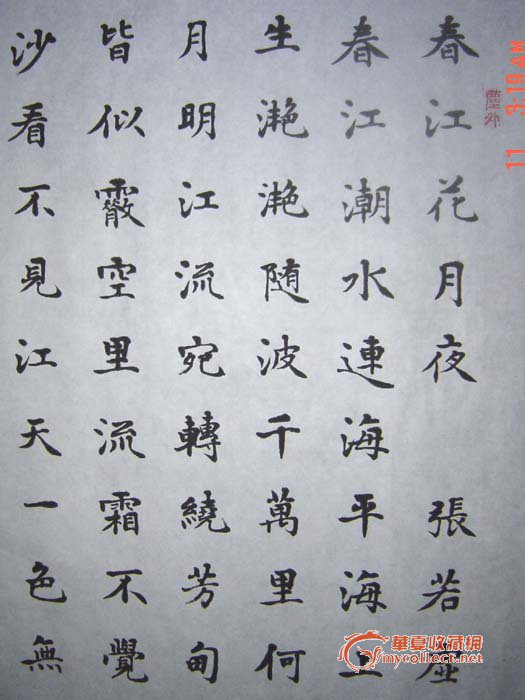 春江花月夜 張若
春江潮水連海平海上
生滟滟随波千萬里何
月明江流宛轉繞芳甸
皆似霰空里流霜不覺
沙看不見江天一色無
11 3:19 AM
華夏收藏網
mycollect.net